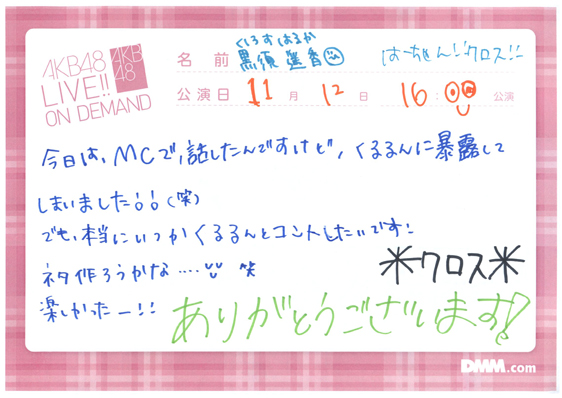 AKB48
LIVE!!
ON DEMAND
AKB
48
くろすはるか
名前 黒須 遥香
はーちゃん!! クロス!!
公演日 11 月 12 日 16:00 公演
今日は、MCで、話したんですけど、くるるんに暴露して
しまいました!!(笑)
でも、本当にいつかくるるんとコントしたいです!
ネタ作ろうかな.... 笑
*クロス*
楽しかったー!!
ありがとうございます!
DMM.com